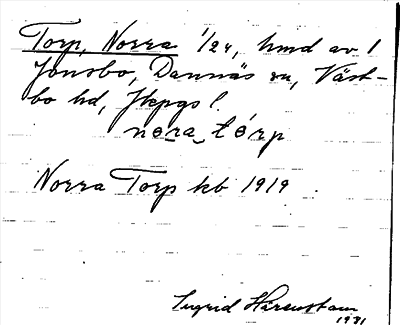 Torp, Norra 1/24, hmd av 1
Jonsbo, Dannäs sn, Väst-
bo hd, Jkpgs l.
nora tórp
Norra Torp kb 1919
Ingrid Hårenstam
1931